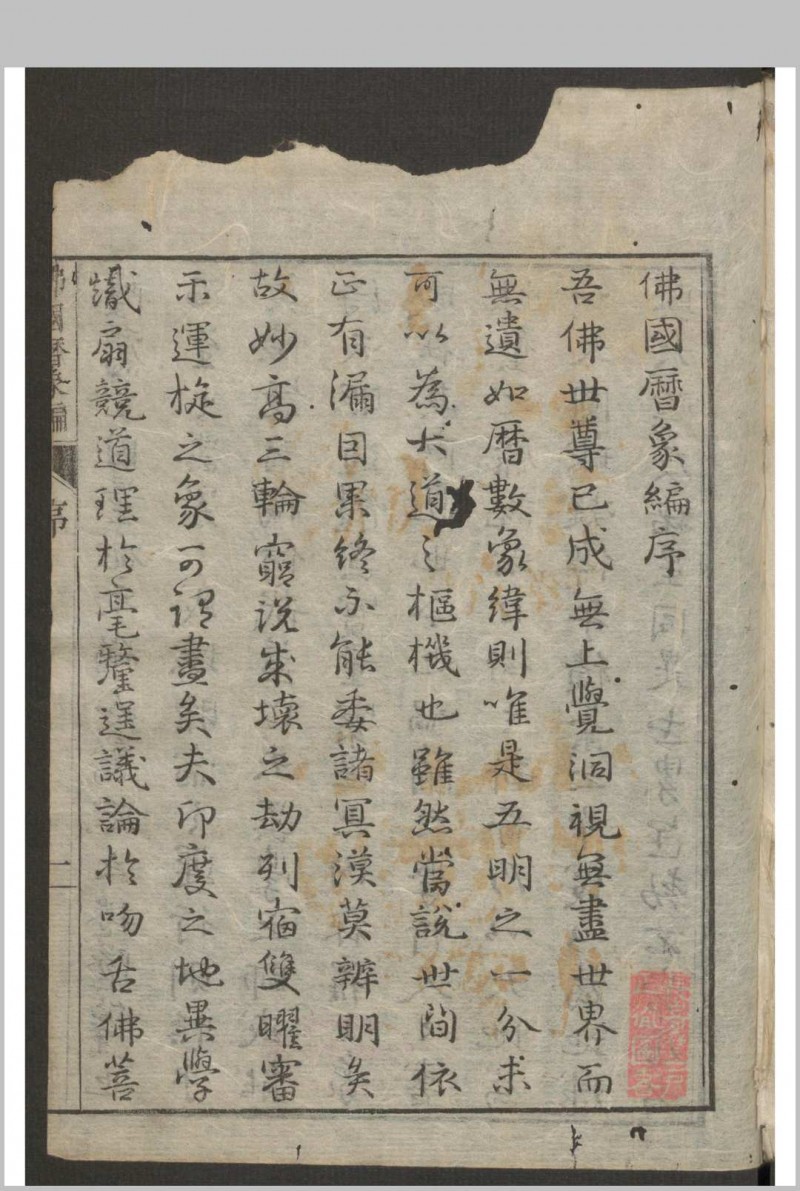 佛國曆象編序
吾佛世尊已成無上覺洞視無盡世界而
無遺如曆數象緯則唯是五明之一分未
可以為大道之樞機也雖然當說世間依
正有漏因果終不能委諸冥漠莫辨明矣
故妙高三輪窮說成壞之劫列宿雙曜審
示運旋之象可謂盡矣夫印度之地異學
熾扇競道理於毫釐逞議論於吻舌佛菩
佛國曆象編 序 一